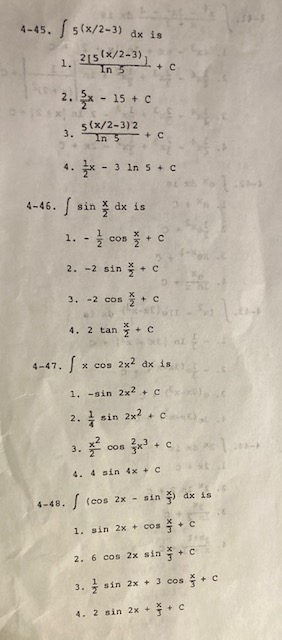 4-45. ∫ 5(x/2-3) dx is
1. 2[5(x/2-3)] / ln 5 + C
2. 5/2 x - 15 + C
3. 5(x/2-3)2 / ln 5 + C
4. 1/2 x - 3 ln 5 + C
4-46. ∫ sin x/2 dx is
1. - 1/2 cos x/2 + C
2. -2 sin x/2 + C
3. -2 cos x/2 + C
4. 2 tan x/2 + C
4-47. ∫ x cos 2x² dx is
1. -sin 2x² + C
2. 1/4 sin 2x² + C
3. x²/2 cos 2/3 x³ + C
4. 4 sin 4x + C
4-48. ∫ (cos 2x - sin x/3) dx is
1. sin 2x + cos x/3 + C
2. 6 cos 2x sin x/3 + C
3. 1/2 sin 2x + 3 cos x/3 + C
4. 2 sin 2x + x/3 + C